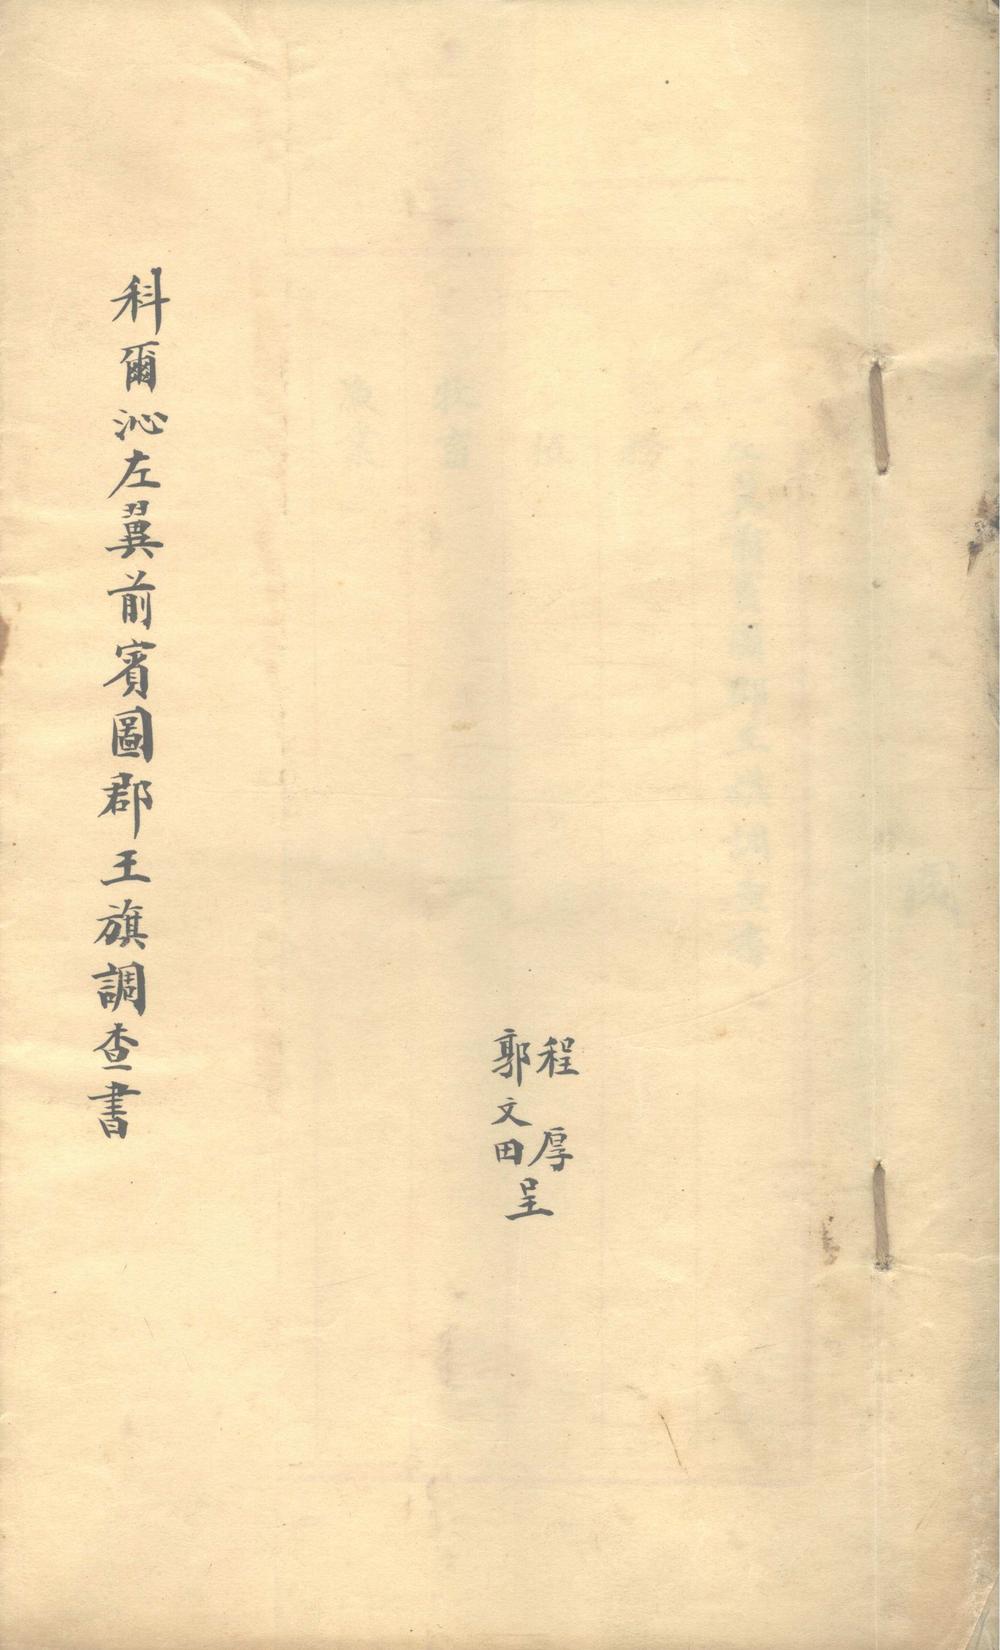 程厚
郭文田呈
科爾沁左翼前賓圖郡王旗調查書